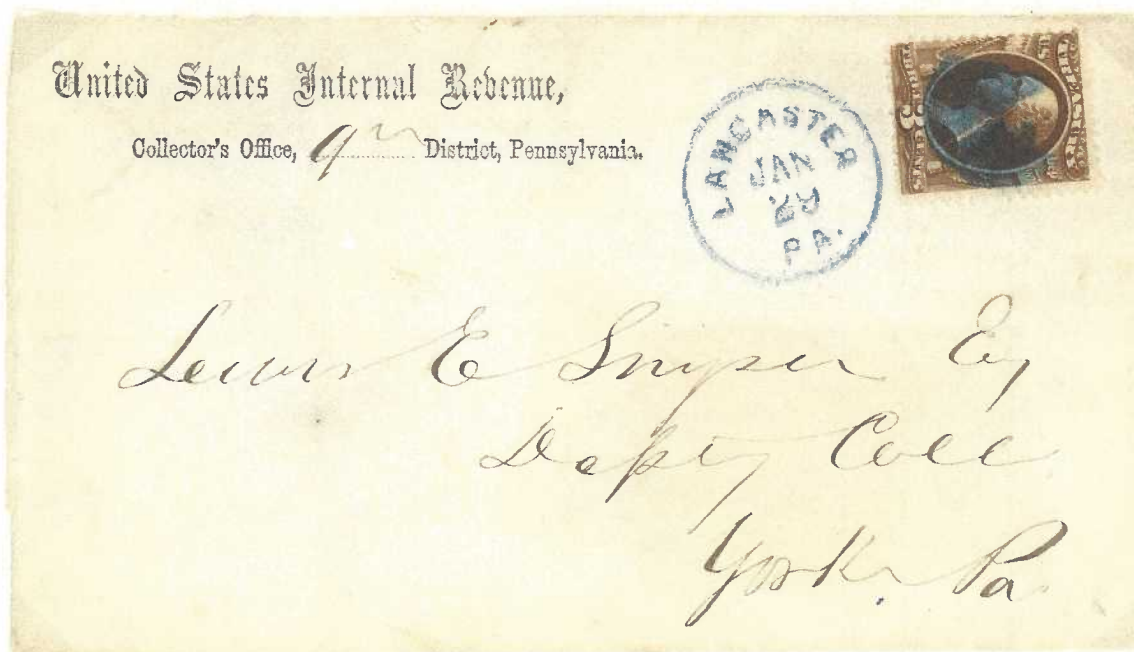 United States Internal Revenue,
Collector's Office, 9th District, Pennsylvania.
LANCASTER
JAN
29
PA.
Lewis E Snyder Esq
Depty Coll
York Pa.